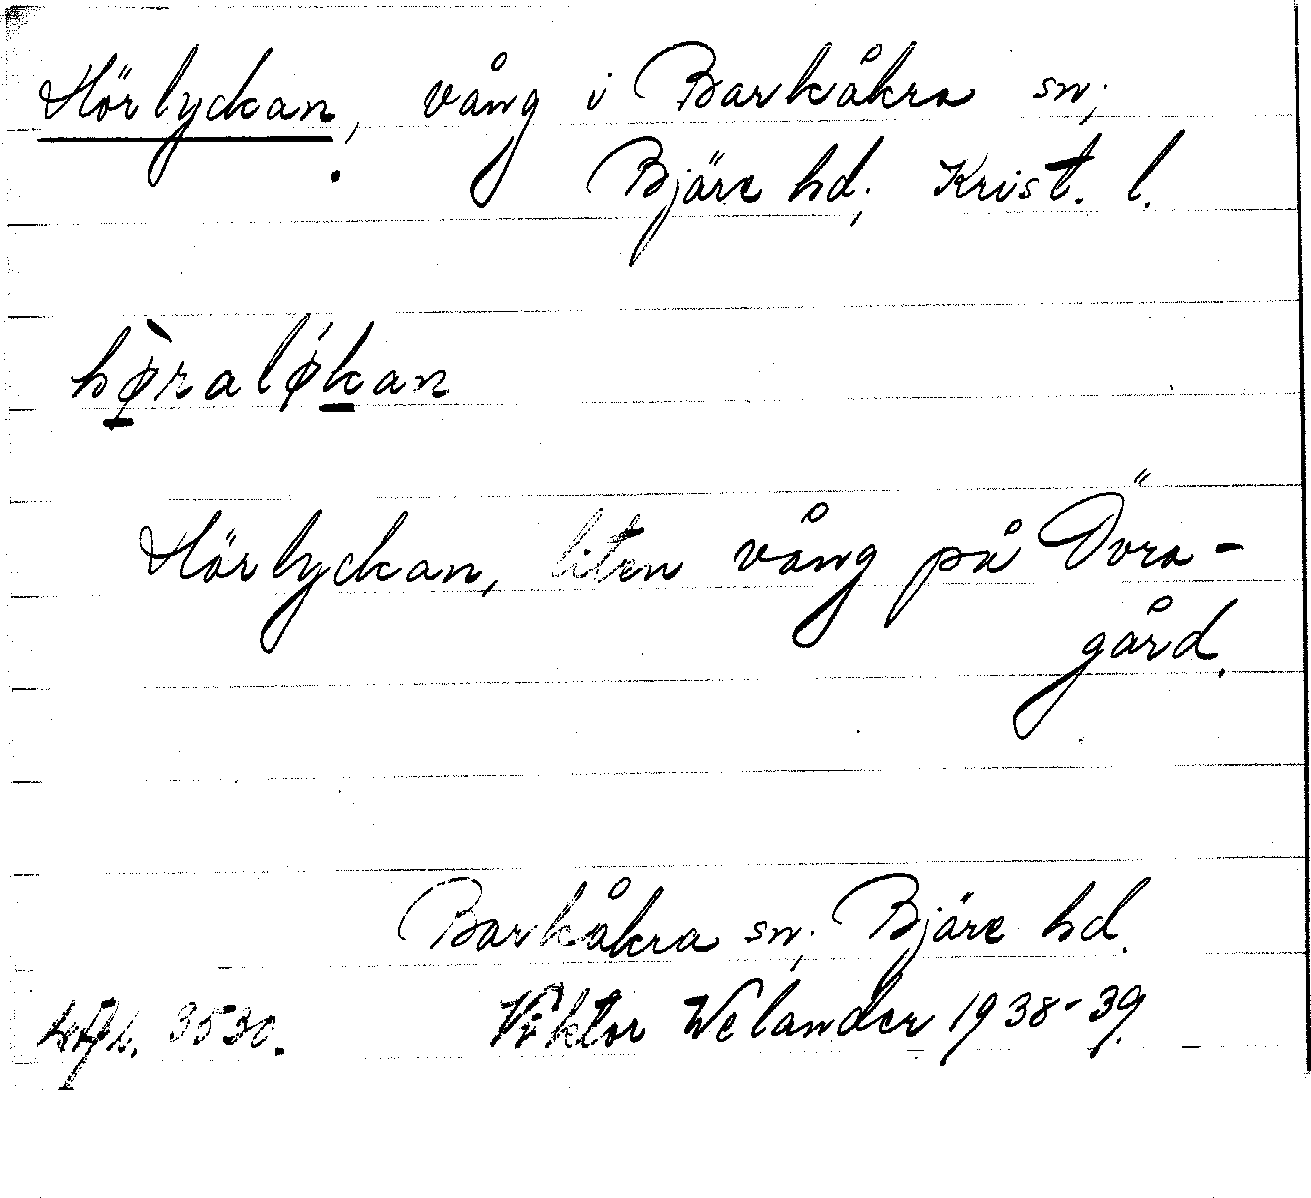 Hörlyckan, vång i Barkåkra sn,
Bjäre hd, Krist. l.
hø̠̀raløḱ̠an
Hörlyckan, liten vång på Öora-
gård.
Barkåkra sn, Bjäre hd.
3530. Viktor Welander 1938-39.